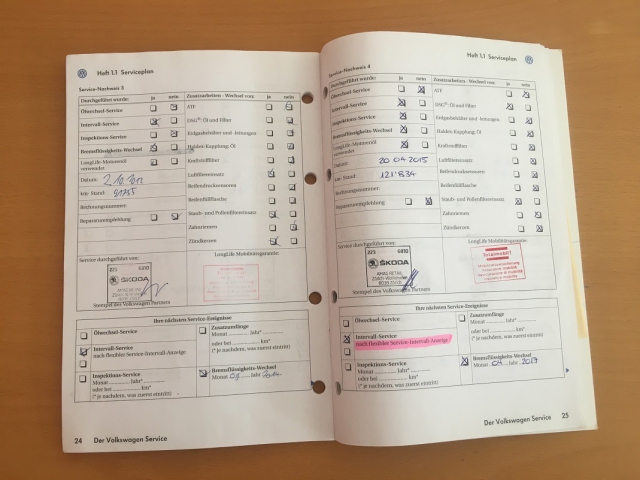 Heft 1.1 Serviceplan
Service-Nachweis 3
Durchgeführt wurde: ja nein
Ölwechsel-Service
Intervall-Service
Inspektions-Service
Bremsflüssigkeits-Wechsel
LongLife-Motorenöl
verwendet
Datum:
km-Stand:
Rechnungsnummer:
Reparaturempfehlung
Zusatzarbeiten - Wechsel von: ja nein
ATF
DSG®-Öl und Filter
Erdgasbehälter und -leitungen
Haldex-Kupplung: Öl
Kraftstofffilter
Luftfiltereinsatz
Reifendrucksensoren
Reifenfüllflasche
Staub- und Pollenfiltereinsatz
Zahnriemen
Zündkerzen
Service durchgeführt von:
LongLife Mobilitätsgarantie:
ŠKODA
AMAG RETAIL
Stempel des Volkswagen Partners
Ihre nächsten Service-Ereignisse
Ölwechsel-Service
Intervall-Service
nach flexibler Service-Intervall-Anzeige
Inspektions-Service
Monat ............ Jahr*............
oder bei ........................ km*
(* je nachdem, was zuerst eintritt)
Zusatzumfänge
Monat ............ Jahr*............
oder bei ........................ km*
(* je nachdem, was zuerst eintritt)
Bremsflüssigkeits-Wechsel
Monat Jahr 2014
24 Der Volkswagen Service
Heft 1.1 Serviceplan
Service-Nachweis 4
Durchgeführt wurde: ja nein
Ölwechsel-Service
Intervall-Service
Inspektions-Service
Bremsflüssigkeits-Wechsel
LongLife-Motorenöl
verwendet
Datum: 20.04.2015
km-Stand: 121'834
Rechnungsnummer:
Reparaturempfehlung
Zusatzarbeiten - Wechsel von: ja nein
ATF
DSG®-Öl und Filter
Erdgasbehälter und -leitungen
Haldex-Kupplung: Öl
Kraftstofffilter
Luftfiltereinsatz
Reifendrucksensoren
Reifenfüllflasche
Staub- und Pollenfiltereinsatz
Zahnriemen
Zündkerzen
Service durchgeführt von:
LongLife Mobilitätsgarantie:
ŠKODA
AMAG RETAIL
Stempel des Volkswagen Partners
Ihre nächsten Service-Ereignisse
Ölwechsel-Service
Intervall-Service
nach flexibler Service-Intervall-Anzeige
Inspektions-Service
Monat ............ Jahr*............
oder bei ........................ km*
(* je nachdem, was zuerst eintritt)
Zusatzumfänge
Monat ............ Jahr*............
oder bei ........................ km*
(* je nachdem, was zuerst eintritt)
Bremsflüssigkeits-Wechsel
Monat 04 Jahr 2017
Der Volkswagen Service 25